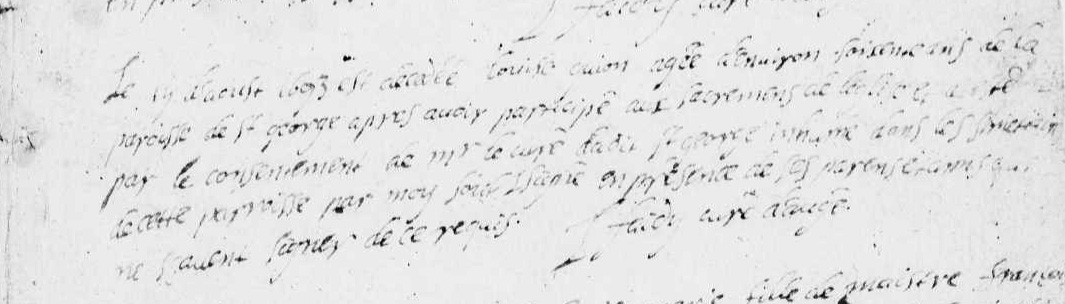 Le 19 daoust 1693 est decedée Louise guion agée denuiron soisente ans de la
paroisse de st george apres auoir participé aux sacremens de leglise et a esté
par le consentement de mr le curé dudit st george inhumée dans les simetiere
de cette parroisse par moy soub signé en présence de ses parens et amis qui
ne scauent signer de ce requis. curé
fille de maistre françois